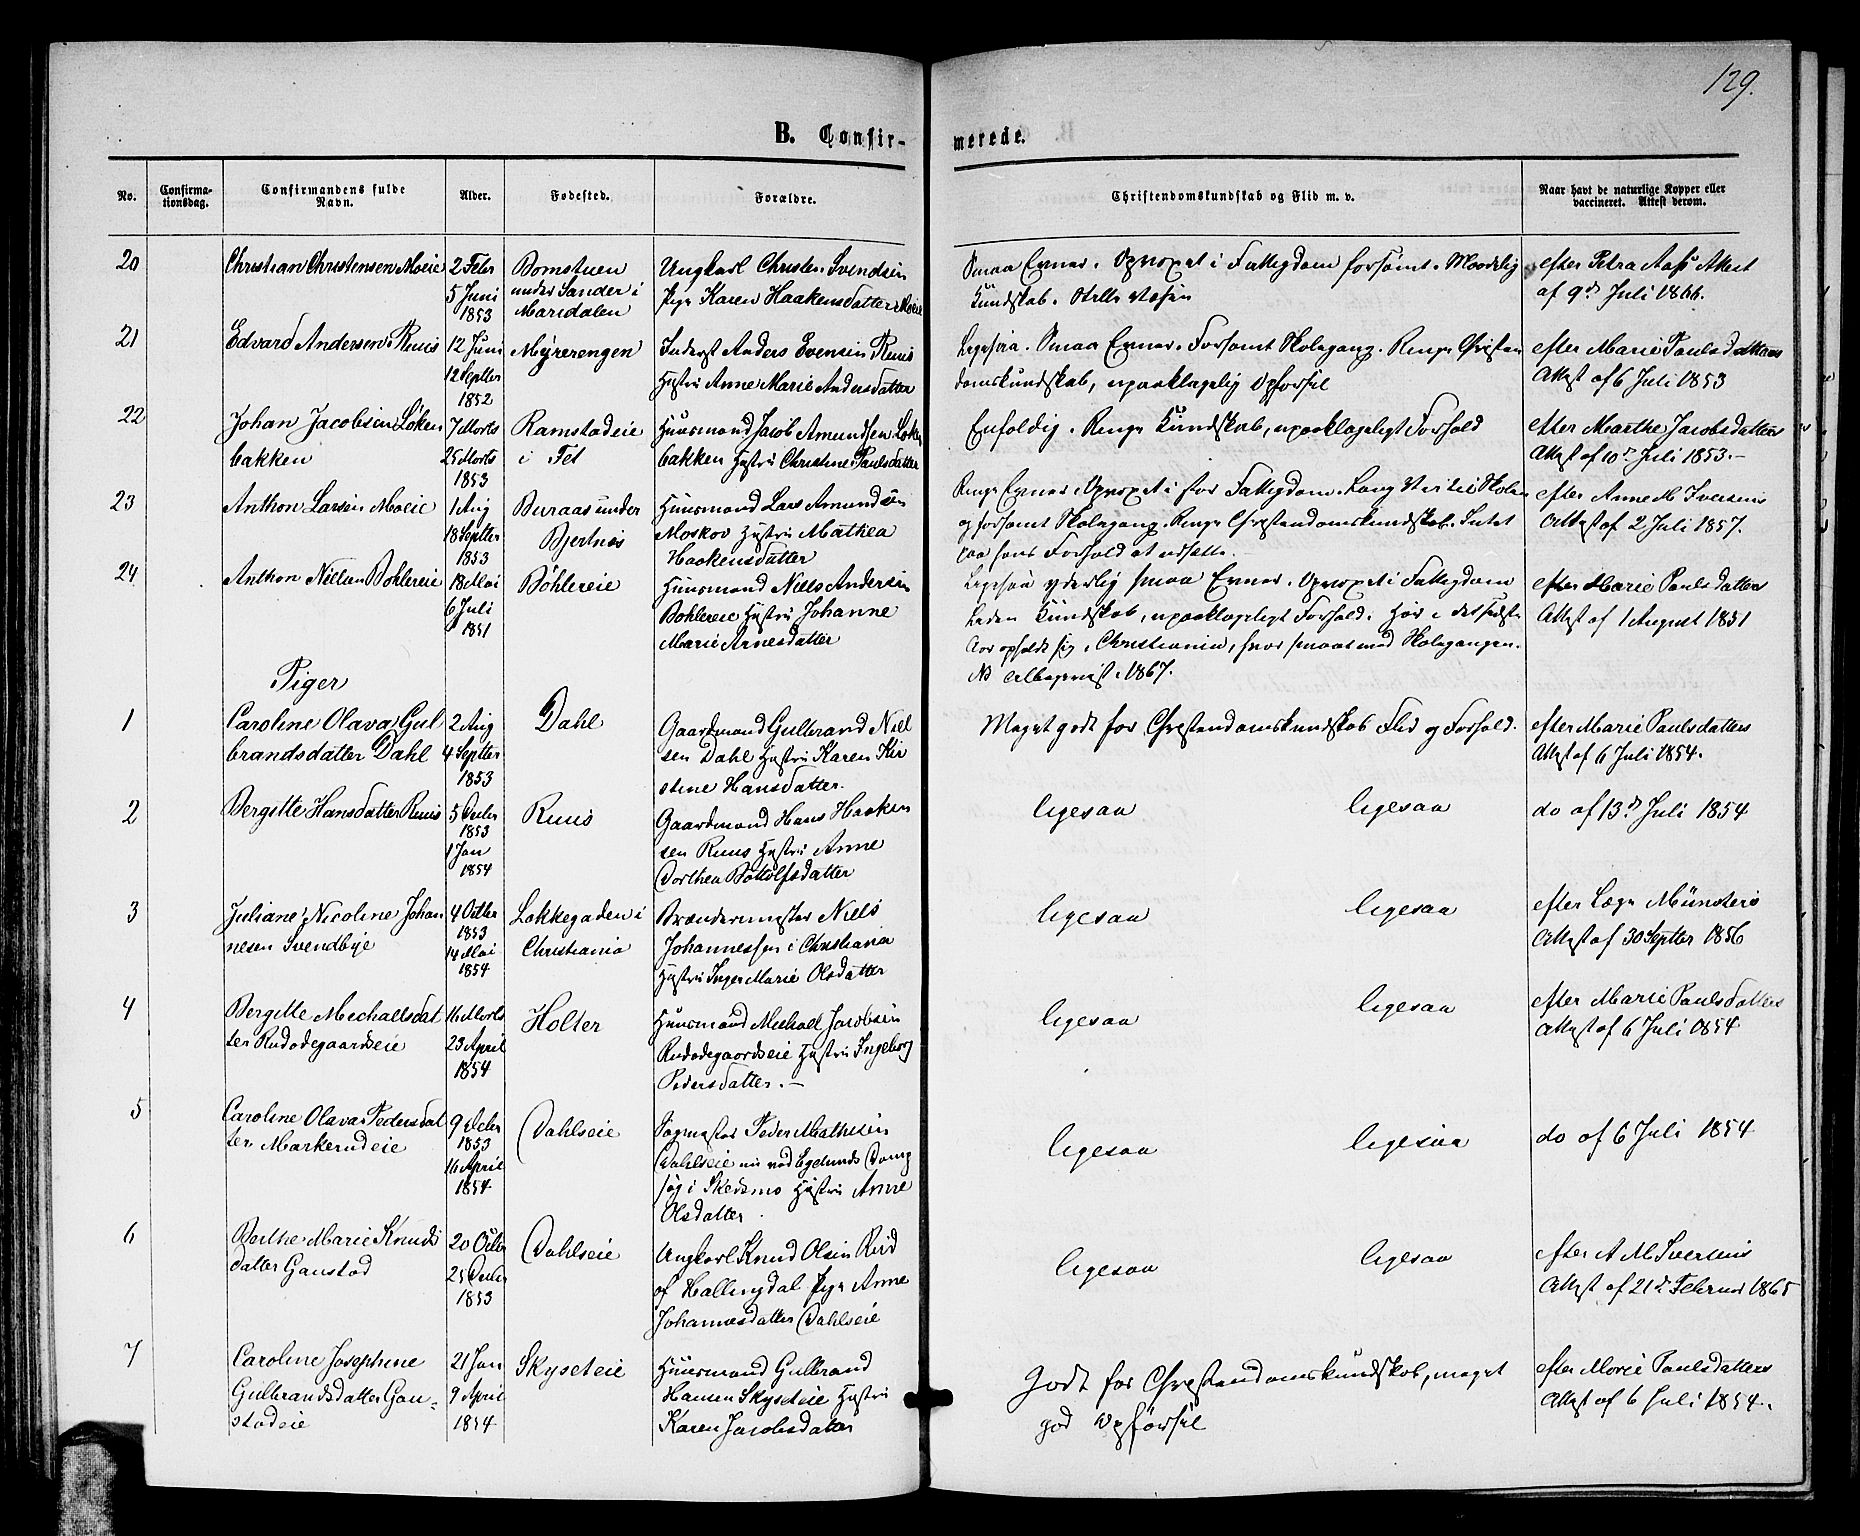 129.
B. Confir-
merede.
No.
Confirma-
tionsdag.
Confirmandens fulde
Navn.
Alder.
Fødested.
Forældre.
Christendomskundskab og Flid m. v.
Naar havt de naturlige Kopper eller
vaccineret. Attest derom.
20
Christian Christensen Moeie
2 Febr
5 Juni
1853
Bomstuen
under Sander i
Maridalen
Ungkarl Christen Svendsen
Pige Karen Haakensdatter Moeie
Smaa Evner. Opvoxet i Fattigdom forsømt. Maadelig
Kundskab. Stille Væsen
efter Petra Aass Attest
af 9de Juli 1866.
21
Edvard Andersen Ruus
12 Juni
12 Septbr
1852
Myrerengen
Inderst Anders Evensen Ruus
Hustru Anne Marie Andersdatter
Ligesaa. Smaa Evner. Forsømt Skolegang. Ringe Christen
domskundskab, upaaklagelig Opførsel
efter Marie Paulsdatters
Attest af 6 Juli 1853
22
Johan Jacobsen Løken
bakken
7 Marts
25 Marts
1853
Ramstadeie
i Fet
Huusmand Jacob Amundsen Løken
bakken Hustru Christine Paulsdatter
Enfoldig. Ringe Kundskab, upaaklageligt Forhold
efter Marthe Jacobsdatters
Attest af 10de Juli 1853.-
23
Anthon Larsen Moeie
1 Aug
18 Septbr
1853
Buraas under
Bjertnæs
Huusmand Lars Amundsen
Moskov Hustru Mathea
Haakensdatter
Ringe Evner. Opvoxet i stor Fattigdom. Lang Vei til Skolen
og forsømt Skolegang. Ringe Christendomskundskab. Intet
paa hans Forhold at udsætte.
efter Anne M Iversens
Attest af 2 Juli 1857.
24
Anthon Nilsen Bøhlereie
18 Mai
6 Juli
1851
Bøhlereie
Huusmand Niels Andersen
Bøhlereie Hustru Johanne
Marie Arnesdatter
Ligesaa yderlig smaa Evner. Opvoxet i Fattigdom
Liden Kundskab, upaaklageligt Forhold. Har i det sidste
Aar opholdt sig i Christiania, hvor smaat med Skolegangen.
NB Afbeviist 1867.
efter Marie Paulsdatters
Attest af 1 August 1851
Piger
1
Caroline Olava Gul
brandsdatter Dahl
2 Aug
4 Septbr
1853
Dahl
Gaardmand Gulbrand Niel
sen Dahl Hustru Karen Kir
stine Hansdatter.
Meget godt for Christendomskundskab Flid og Forhold.
efter Marie Paulsdatters
Attest af 6 Juli 1854.
2
Bergitte Hansdatter Ruus
5 Decbr
1853
1 Jan
1854
Ruus
Gaardmand Hans Haaken
sen Ruus Hustru Anne
Dorthea Bottolfsdatter
ligesaa
ligesaa
do af 13de Juli 1854
3
Juliane Nicoline Johan
nesen Svendbye
4 Octbr
1853
14 Mai
1854
Løkkegaden i
Christiania
Brændermester Niels
Johannessen i Christiania
Hustru Inger Marie Olsdatter
ligesaa
ligesaa
efter Læge Münsters
Attest af 30 Septbr 1856
4
Bergitte Mechaelsdat
ter Rudødegaardseie
16 Marts
23 April
1854
Holter
Huusmand Michael Jacobsen
Rudødegaardseie Hustru Ingeborg
Pedersdatter.-
ligesaa
ligesaa
efter Marie Paulsdatters
Attest af 6 Juli 1854
5
Caroline Olava Pedersdat
ter Markerudeie
9 Decbr
1853
16 April
1854
Dahlseie
Sagmester Peder Mathesen
Dahlseie nu ved Egelunds Damp
sag i Skedsmo Hustru Anne
Olsdatter.
ligesaa
ligesaa
do af 6 Juli 1854
6
Berthe Marie Knuds
datter Ganstad
20 Octbr
25 Decbr
1853
Dahlseie
Ungkarl Knud Olsen Rud
af Hallingdal Pige Anne
Johannesdatter Dahlseie
ligesaa
ligesaa
efter A M Iversens
Attest af 21de Februar 1865
7
Caroline Josephine
Gulbrandsdatter Gan-
stadeie
21 Jan
9 April
1854
Skyseteie
Huusmand Gulbrand
Hansen Skyseteie Hustru
Karen Jacobsdatter
Godt for Christendomskundskab, meget
god Opførsel
efter Marie Paulsdatters
Attest af 6 Juli 1854.